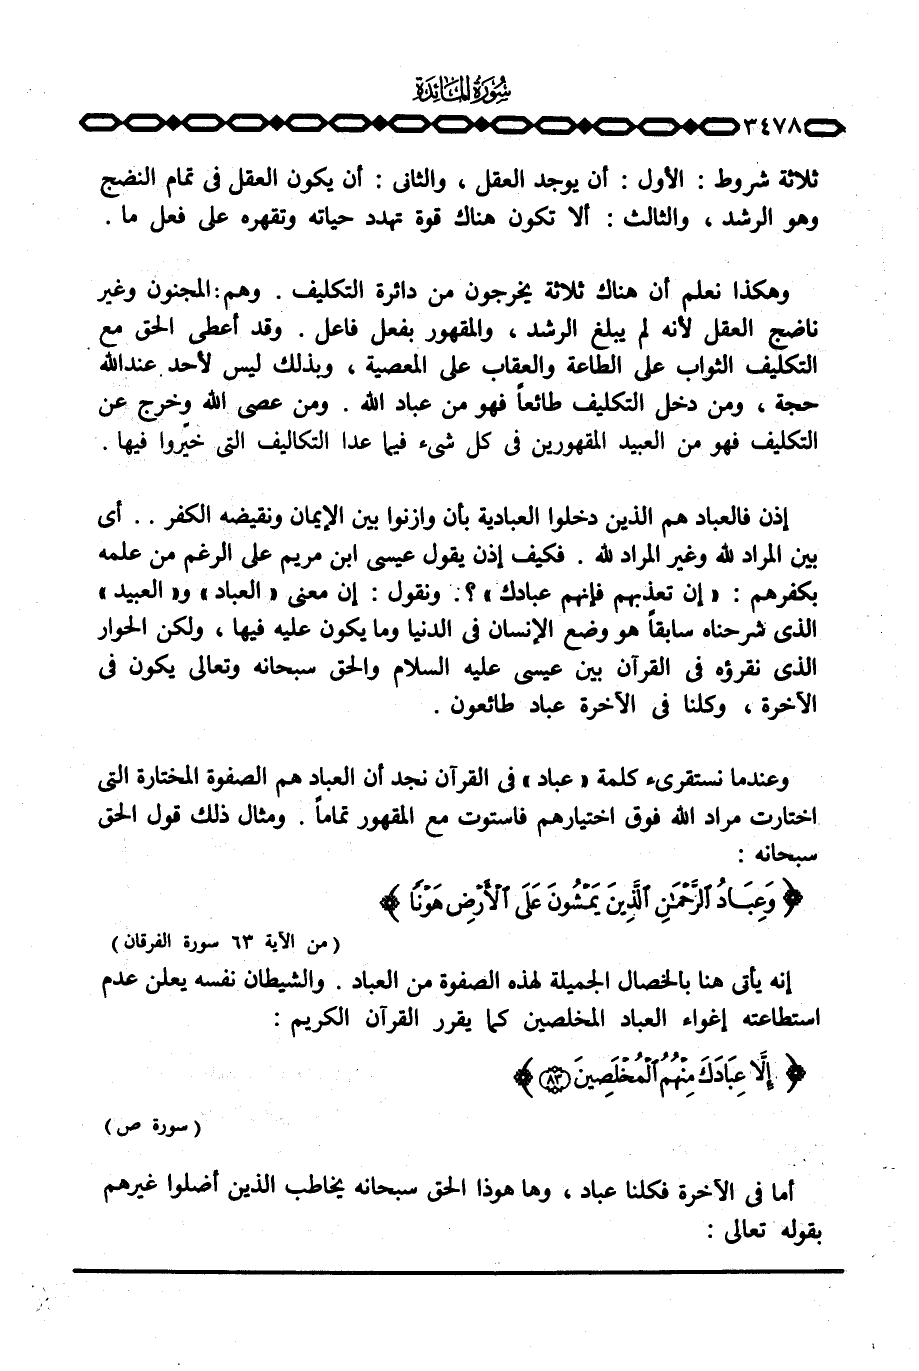 سورة المائدة
٣٤٧٨
ثلاثة شروط : الأول : أن يوجد العقل ، والثانى : أن يكون العقل فى تمام النضج
وهو الرشد ، والثالث : ألا تكون هناك قوة تهدد حياته وتقهره على فعل ما .
وهكذا نعلم أن هناك ثلاثة يخرجون من دائرة التكليف . وهم : المجنون وغير
ناضج العقل لأنه لم يبلغ الرشد ، والمقهور بفعل فاعل . وقد أعطى الحق مع
التكليف الثواب على الطاعة والعقاب على المعصية ، وبذلك ليس لأحد عند الله
حجة ، ومن دخل التكليف طائعاً فهو من عباد الله . ومن عصى الله وخرج عن
التكليف فهو من العبيد المقهورين فى كل شىء فيما عدا التكاليف التى خيّروا فيها .
إذن فالعباد هم الذين دخلوا العبادية بأن وازنوا بين الإيمان ونقيضه الكفر . . أى
بين المراد لله وغير المراد لله . فكيف إذن يقول عيسى ابن مريم على الرغم من علمه
بكفرهم : « إن تعذبهم فإنهم عبادك » ؟. ونقول : إن معنى « العباد » و« العبيد »
الذى شرحناه سابقاً هو وضع الإنسان فى الدنيا وما يكون عليه فيها ، ولكن الحوار
الذى نقرؤه فى القرآن بين عيسى عليه السلام والحق سبحانه وتعالى يكون فى
الآخرة ، وكلنا فى الآخرة عباد طائعون .
وعندما نستقرىء كلمة « عباد » فى القرآن نجد أن العباد هم الصفوة المختارة التى
اختارت مراد الله فوق اختيارهم فاستوت مع المقهور تماماً . ومثال ذلك قول الحق
سبحانه :
﴿ وَعِبَادُ ٱلرَّحْمَٰنِ ٱلَّذِينَ يَمْشُونَ عَلَى ٱلْأَرْضِ هَوْنًا ﴾
( من الآية ٦٣ سورة الفرقان )
إنه يأتى هنا بالخصال الجميلة لهذه الصفوة من العباد . والشيطان نفسه يعلن عدم
استطاعته إغواء العباد المخلصين كما يقرر القرآن الكريم :
﴿ إِلَّا عِبَادَكَ مِنْهُمُ ٱلْمُخْلَصِينَ ٨٣ ﴾
( سورة ص )
أما فى الآخرة فكلنا عباد ، وها هوذا الحق سبحانه يخاطب الذين أضلوا غيرهم
بقوله تعالى :